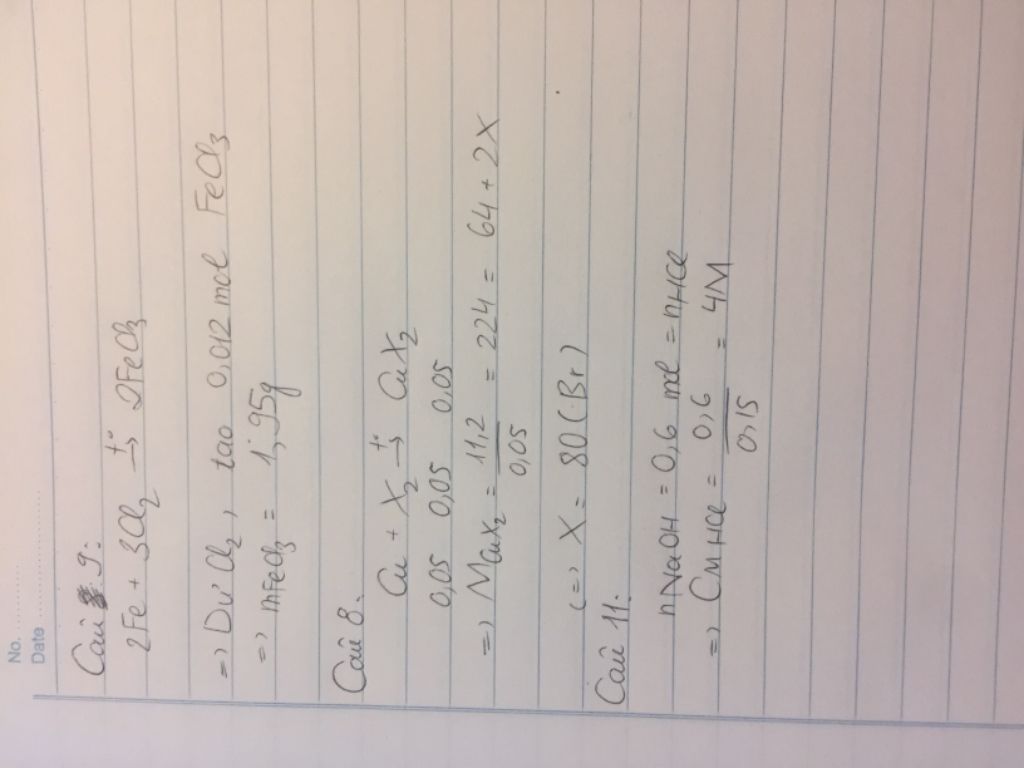 No.
Date
Câu 9:
2Fe + 3Cl2 t°→ 2FeCl3
=> Dư Cl2, tao 0,012 mol FeCl3
=> nFeCl3 = 1,95g
Câu 8.
Cu + X2 t°→ CuX2
0,05 0,05 0,05
=> MCuX2 = 11,2/0,05 = 224 = 64 + 2X
(=> X = 80 (Br)
Câu 11.
nNaOH = 0,6 mol = nHCl
=> CM HCl = 0,6/0,15 = 4M